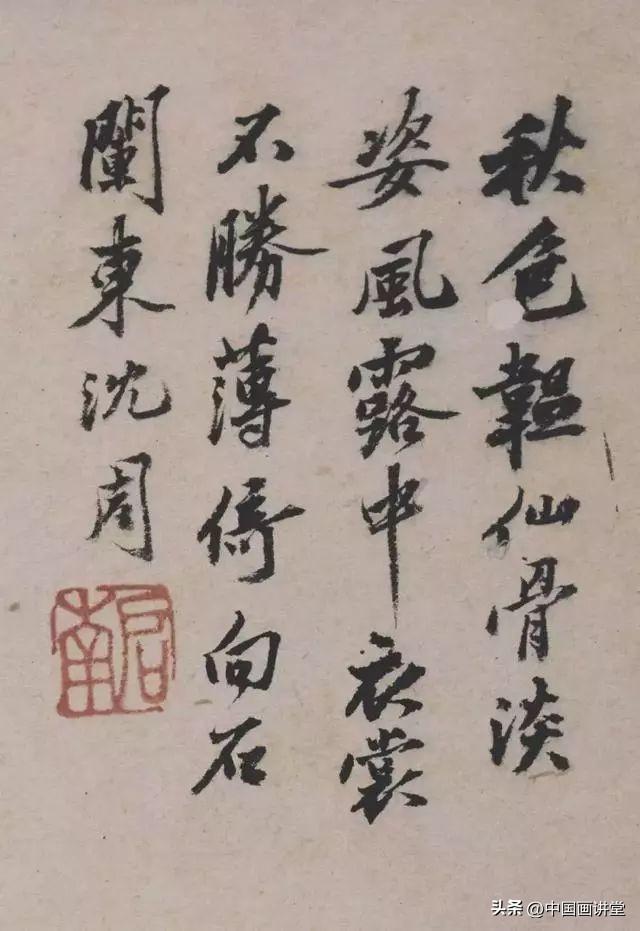 秋色韞仙骨淡
姿風露中衣裳
不勝薄倚向石
闌東沈周
启南
头条 @中国画讲堂